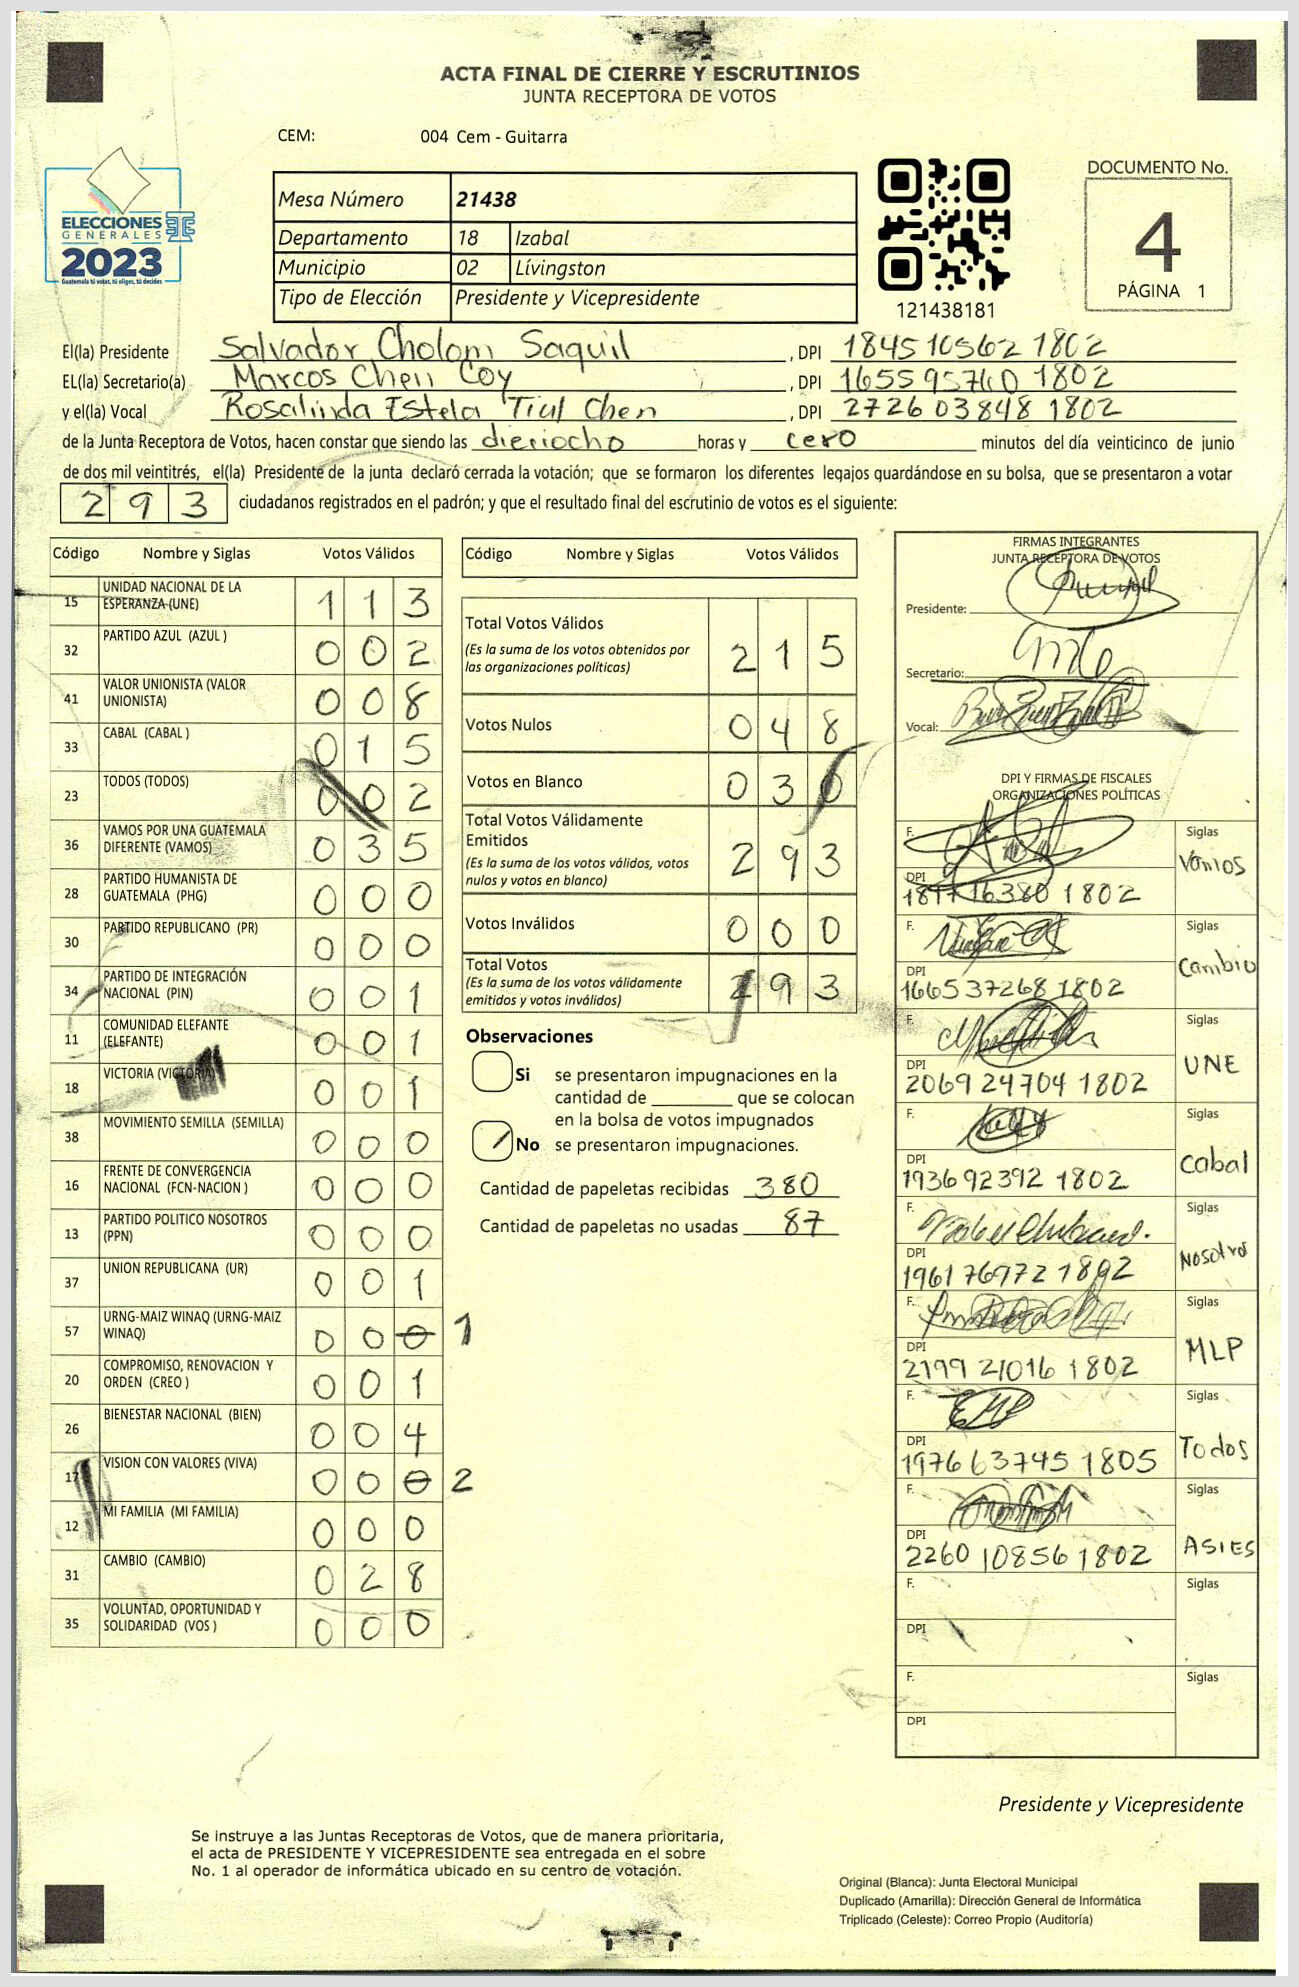 ACTA FINAL DE CIERRE Y ESCRUTINIOS
JUNTA RECEPTORA DE VOTOS
CEM: 004 Cem - Guitarra
ELECCIONES
GENERALES
2023
Guatemala tú votas, tú eliges, tú decides
Mesa Número 21438
Departamento 18 Izabal
Municipio 02 Lívingston
Tipo de Elección Presidente y Vicepresidente
121438181
DOCUMENTO No.
4
PÁGINA 1
El(la) Presidente Salvador Cholom Saquil , DPI 184510562 1802
EL(la) Secretario(a) Marcos Chen Coy , DPI 165595740 1802
y el(la) Vocal Rosalinda Estela Tiul Chen , DPI 272603848 1802
de la Junta Receptora de Votos, hacen constar que siendo las dieciocho horas y cero minutos del día veinticinco de junio
de dos mil veintitrés, el(la) Presidente de la junta declaró cerrada la votación; que se formaron los diferentes legajos guardándose en su bolsa, que se presentaron a votar
293 ciudadanos registrados en el padrón; y que el resultado final del escrutinio de votos es el siguiente:
Código Nombre y Siglas Votos Válidos
15 UNIDAD NACIONAL DE LA ESPERANZA (UNE) 113
32 PARTIDO AZUL (AZUL ) 002
41 VALOR UNIONISTA (VALOR UNIONISTA) 008
33 CABAL (CABAL ) 015
23 TODOS (TODOS) 002
36 VAMOS POR UNA GUATEMALA DIFERENTE (VAMOS) 035
28 PARTIDO HUMANISTA DE GUATEMALA (PHG) 000
30 PARTIDO REPUBLICANO (PR) 000
34 PARTIDO DE INTEGRACIÓN NACIONAL (PIN) 001
11 COMUNIDAD ELEFANTE (ELEFANTE) 001
18 VICTORIA (VICTORIA) 001
38 MOVIMIENTO SEMILLA (SEMILLA) 000
16 FRENTE DE CONVERGENCIA NACIONAL (FCN-NACION ) 000
13 PARTIDO POLITICO NOSOTROS (PPN) 000
37 UNION REPUBLICANA (UR) 001
57 URNG-MAIZ WINAQ (URNG-MAIZ WINAQ) 000 1
20 COMPROMISO, RENOVACION Y ORDEN (CREO ) 001
26 BIENESTAR NACIONAL (BIEN) 004
17 VISION CON VALORES (VIVA) 000 2
12 MI FAMILIA (MI FAMILIA) 000
31 CAMBIO (CAMBIO) 028
35 VOLUNTAD, OPORTUNIDAD Y SOLIDARIDAD (VOS ) 000
Código Nombre y Siglas Votos Válidos
Total Votos Válidos 215
(Es la suma de los votos obtenidos por
las organizaciones políticas)
Votos Nulos 048
Votos en Blanco 030
Total Votos Válidamente
Emitidos 293
(Es la suma de los votos válidos, votos
nulos y votos en blanco)
Votos Inválidos 000
Total Votos 293
(Es la suma de los votos válidamente
emitidos y votos inválidos)
Observaciones
Si se presentaron impugnaciones en la
cantidad de ________ que se colocan
en la bolsa de votos impugnados
No se presentaron impugnaciones.
Cantidad de papeletas recibidas 380
Cantidad de papeletas no usadas 87
FIRMAS INTEGRANTES
JUNTA RECEPTORA DE VOTOS
Presidente:
Secretario:
Vocal:
DPI Y FIRMAS DE FISCALES
ORGANIZACIONES POLÍTICAS
F. Siglas
Vamos
DPI
F. Siglas
Cambio
DPI
166537268 1802
F. Siglas
UNE
DPI
2069 24704 1802
F. Siglas
Cabal
DPI
193692392 1802
F. Siglas
Nosotro
DPI
1961 76972 1802
F. Siglas
MLP
DPI
2199 21016 1802
F. Siglas
Todos
DPI
1976 63745 1805
F. Siglas
ASIES
DPI
2260 10856 1802
F. Siglas
DPI
F. Siglas
DPI
Presidente y Vicepresidente
Se instruye a las Juntas Receptoras de Votos, que de manera prioritaria,
el acta de PRESIDENTE Y VICEPRESIDENTE sea entregada en el sobre
No. 1 al operador de informática ubicado en su centro de votación.
Original (Blanca): Junta Electoral Municipal
Duplicado (Amarilla): Dirección General de Informática
Triplicado (Celeste): Correo Propio (Auditoría)